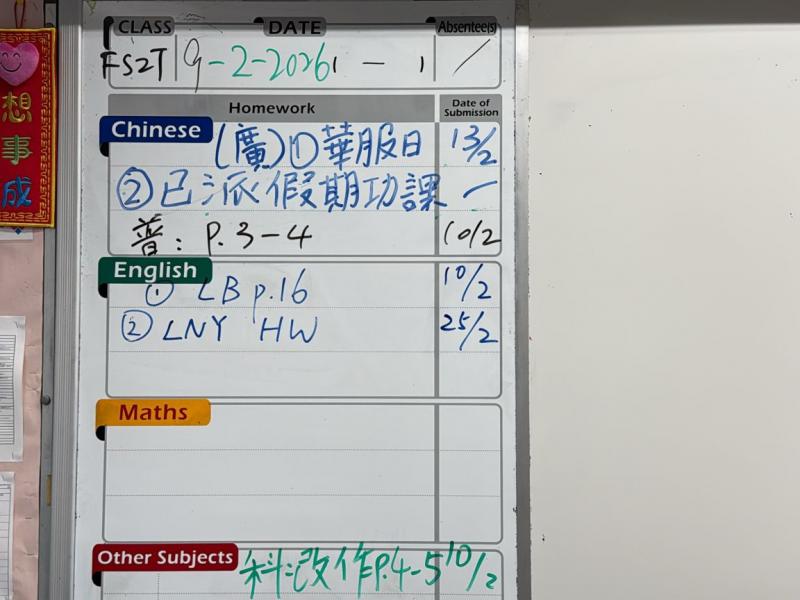 CLASS DATE Absentee(s)
FS2T 9-2-2026 1 - 1 /
Homework Date of Submission
Chinese (廣)① 華服日 13/2
② 已派假期功課 —
普: P.3-4 10/2
English ① LB p.16 10/2
② LNY HW 25/2
Maths
Other Subjects 科:改作P.4-5 10/2
想
事
成